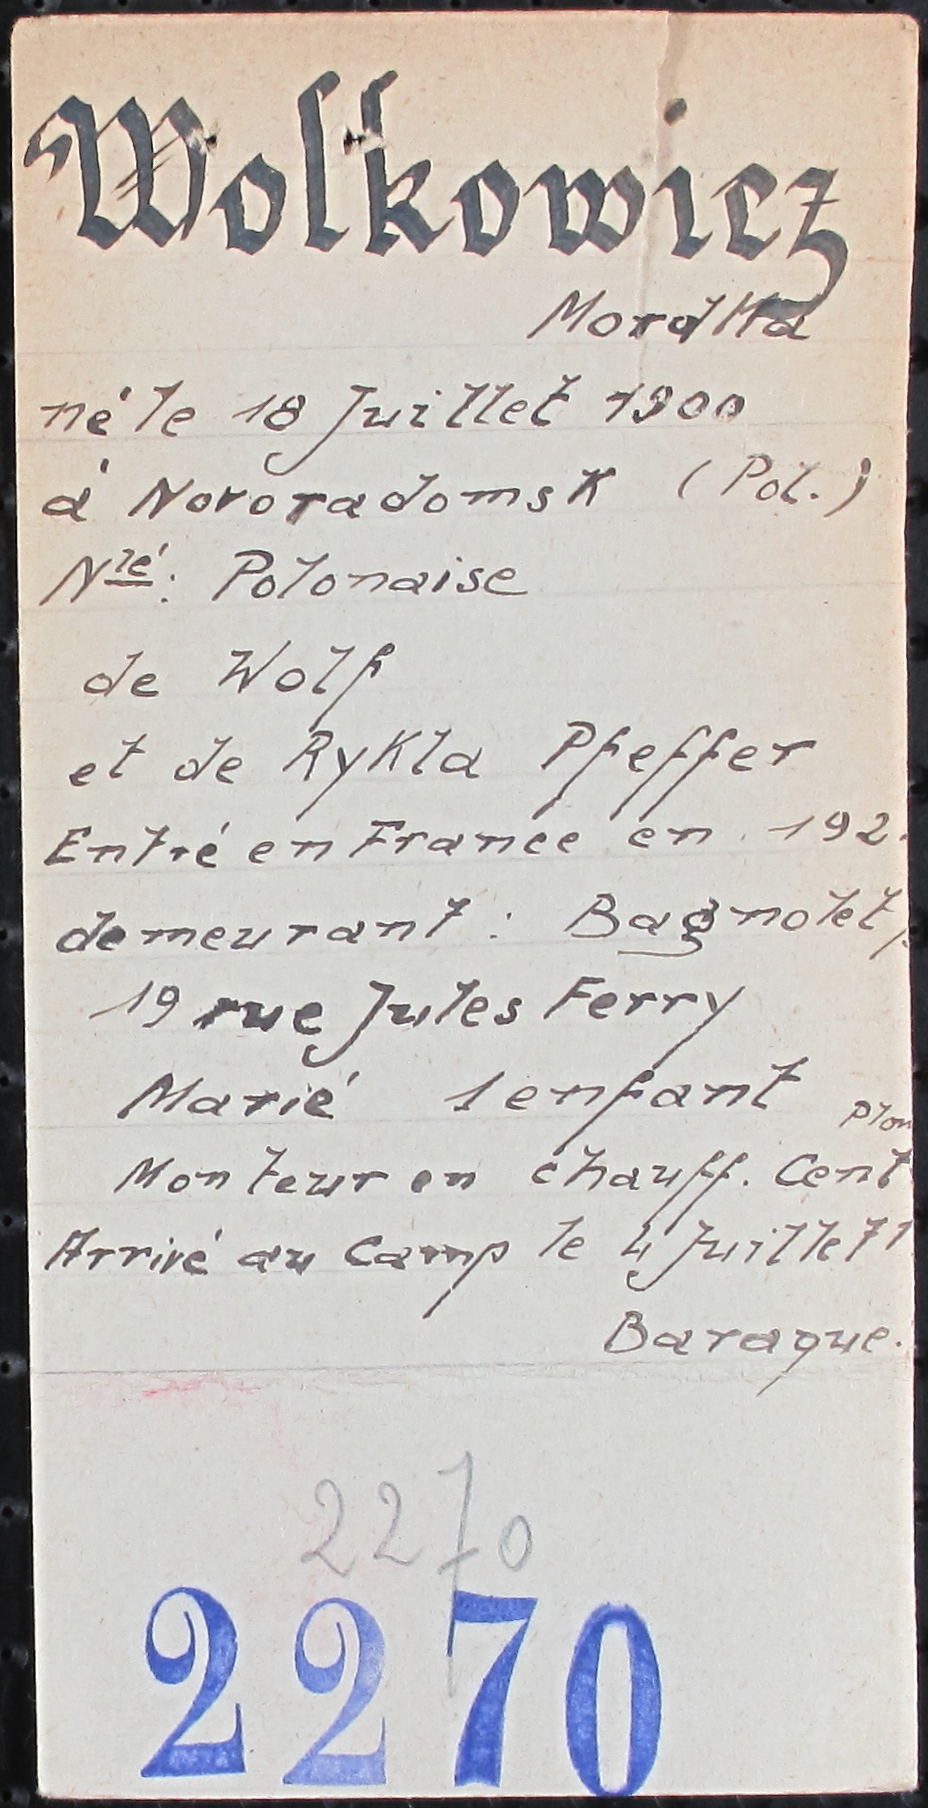 Wolkowicz
Mordka
né le 18 Juillet 1900
à Novoradomsk (Pol.)
Nlé: Polonaise
de Wolf
et de Rykla Pfeffer
Entré en France en 192.
demeurant : Bagnolet,
19 rue Jules Ferry
Marié 1 enfant
plom
Monteur en chauff. Cent
Arrivé au Camp le 4 Juillet 1
Baraque.
2270
2270